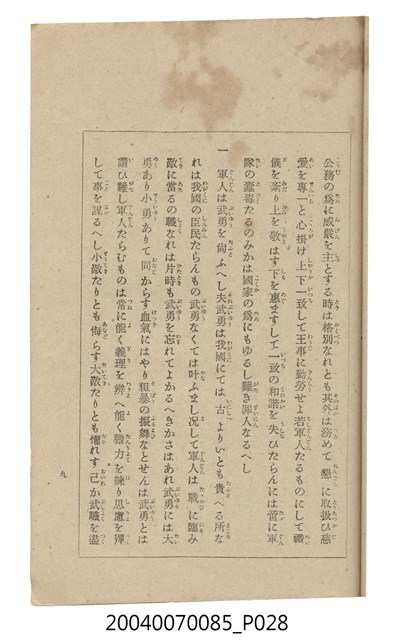 公務の爲に威嚴を主とする時は格別なれとも其外は務めて懇に取扱ひ慈
愛を專一と心掛け上下一致して王事に勤勞せよ若軍人たるものにして禮
儀を紊り上を敬はす下を惠ますして一致の和諧を失ひたらんには啻に軍
隊の蠧毒たるのみかは國家の爲にもゆるし難き罪人なるへし
一 軍人は武勇を尙ふへし夫武勇は我國にては古よりいとも貴へる所な
れは我國の臣民たらんもの武勇なくては叶ふまし况して軍人は戰に臨み
敵に當るの職なれは片時も武勇を忘れてよかるへきかさはあれ武勇には大
勇あり小勇ありて同からす血氣にはやり粗暴の振舞なとせんは武勇とは
謂ひ難し軍人たらむものは常に能く義理を辨へ能く膽力を練り思慮を殫
して事を謀るへし小敵たりとも侮らす大敵たりとも懼れす己か武職を盡
九
20040070085_P028